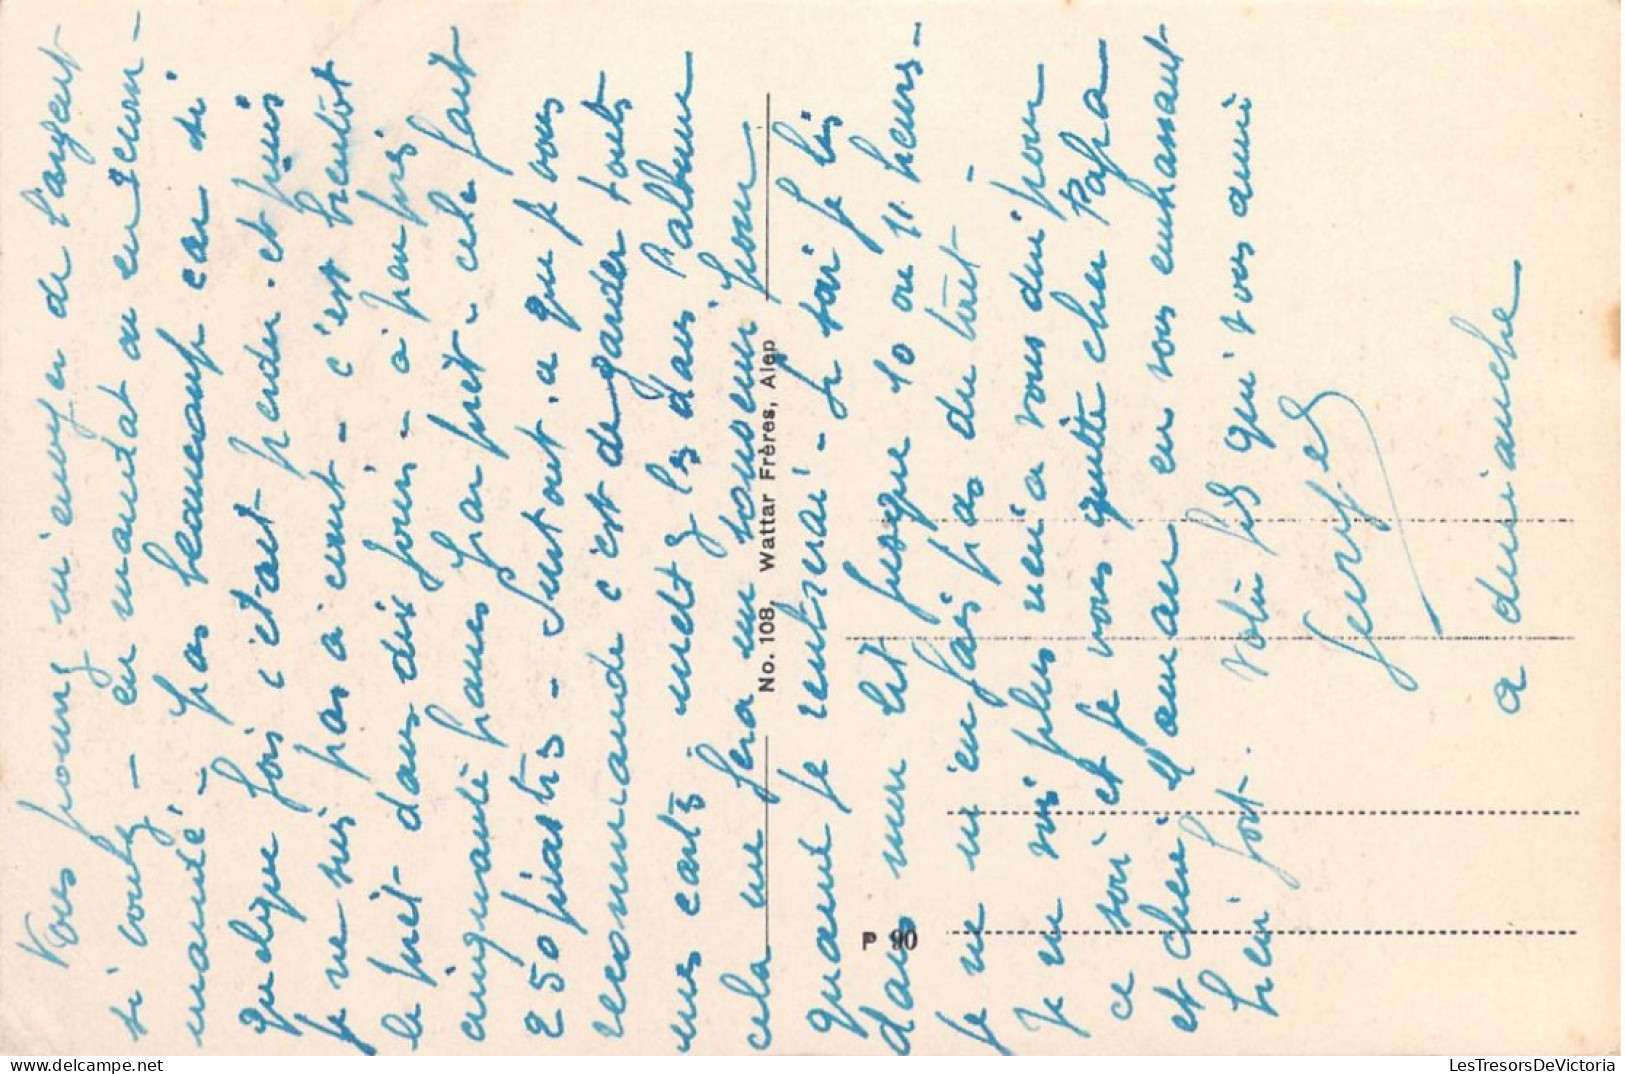 Vous pouvez m'envoyer de l'argent
si voulez - en mandat ou en recom-
mandé - pas beaucoup car si
quelque fois c'était perdu. et puis
je ne suis pas à cent - c'est bientôt
le prêt dans dix jours - à peu près
cinquante francs par prêt - cela fait
250 piastres - Surtout. a que je vous
recommande c'est de garder touts
mes cartes. mettez les dans l'album
cela me fera un souvenir pour
quand je rentrerai - Le soir je lis
dans mon lit jusque 10 ou 11 heures -
je ne m'en fais pas du tout -
Je ne vois plus rien a vous dire pour
ce soir et je vous quitte cher Papa
et chère Maman en vous embrassant
bien fort. Votre fils qui vous aime
a dimanche
No. 108, Wattar Frères, Alep
P 90
LesTresorsDeVictoria